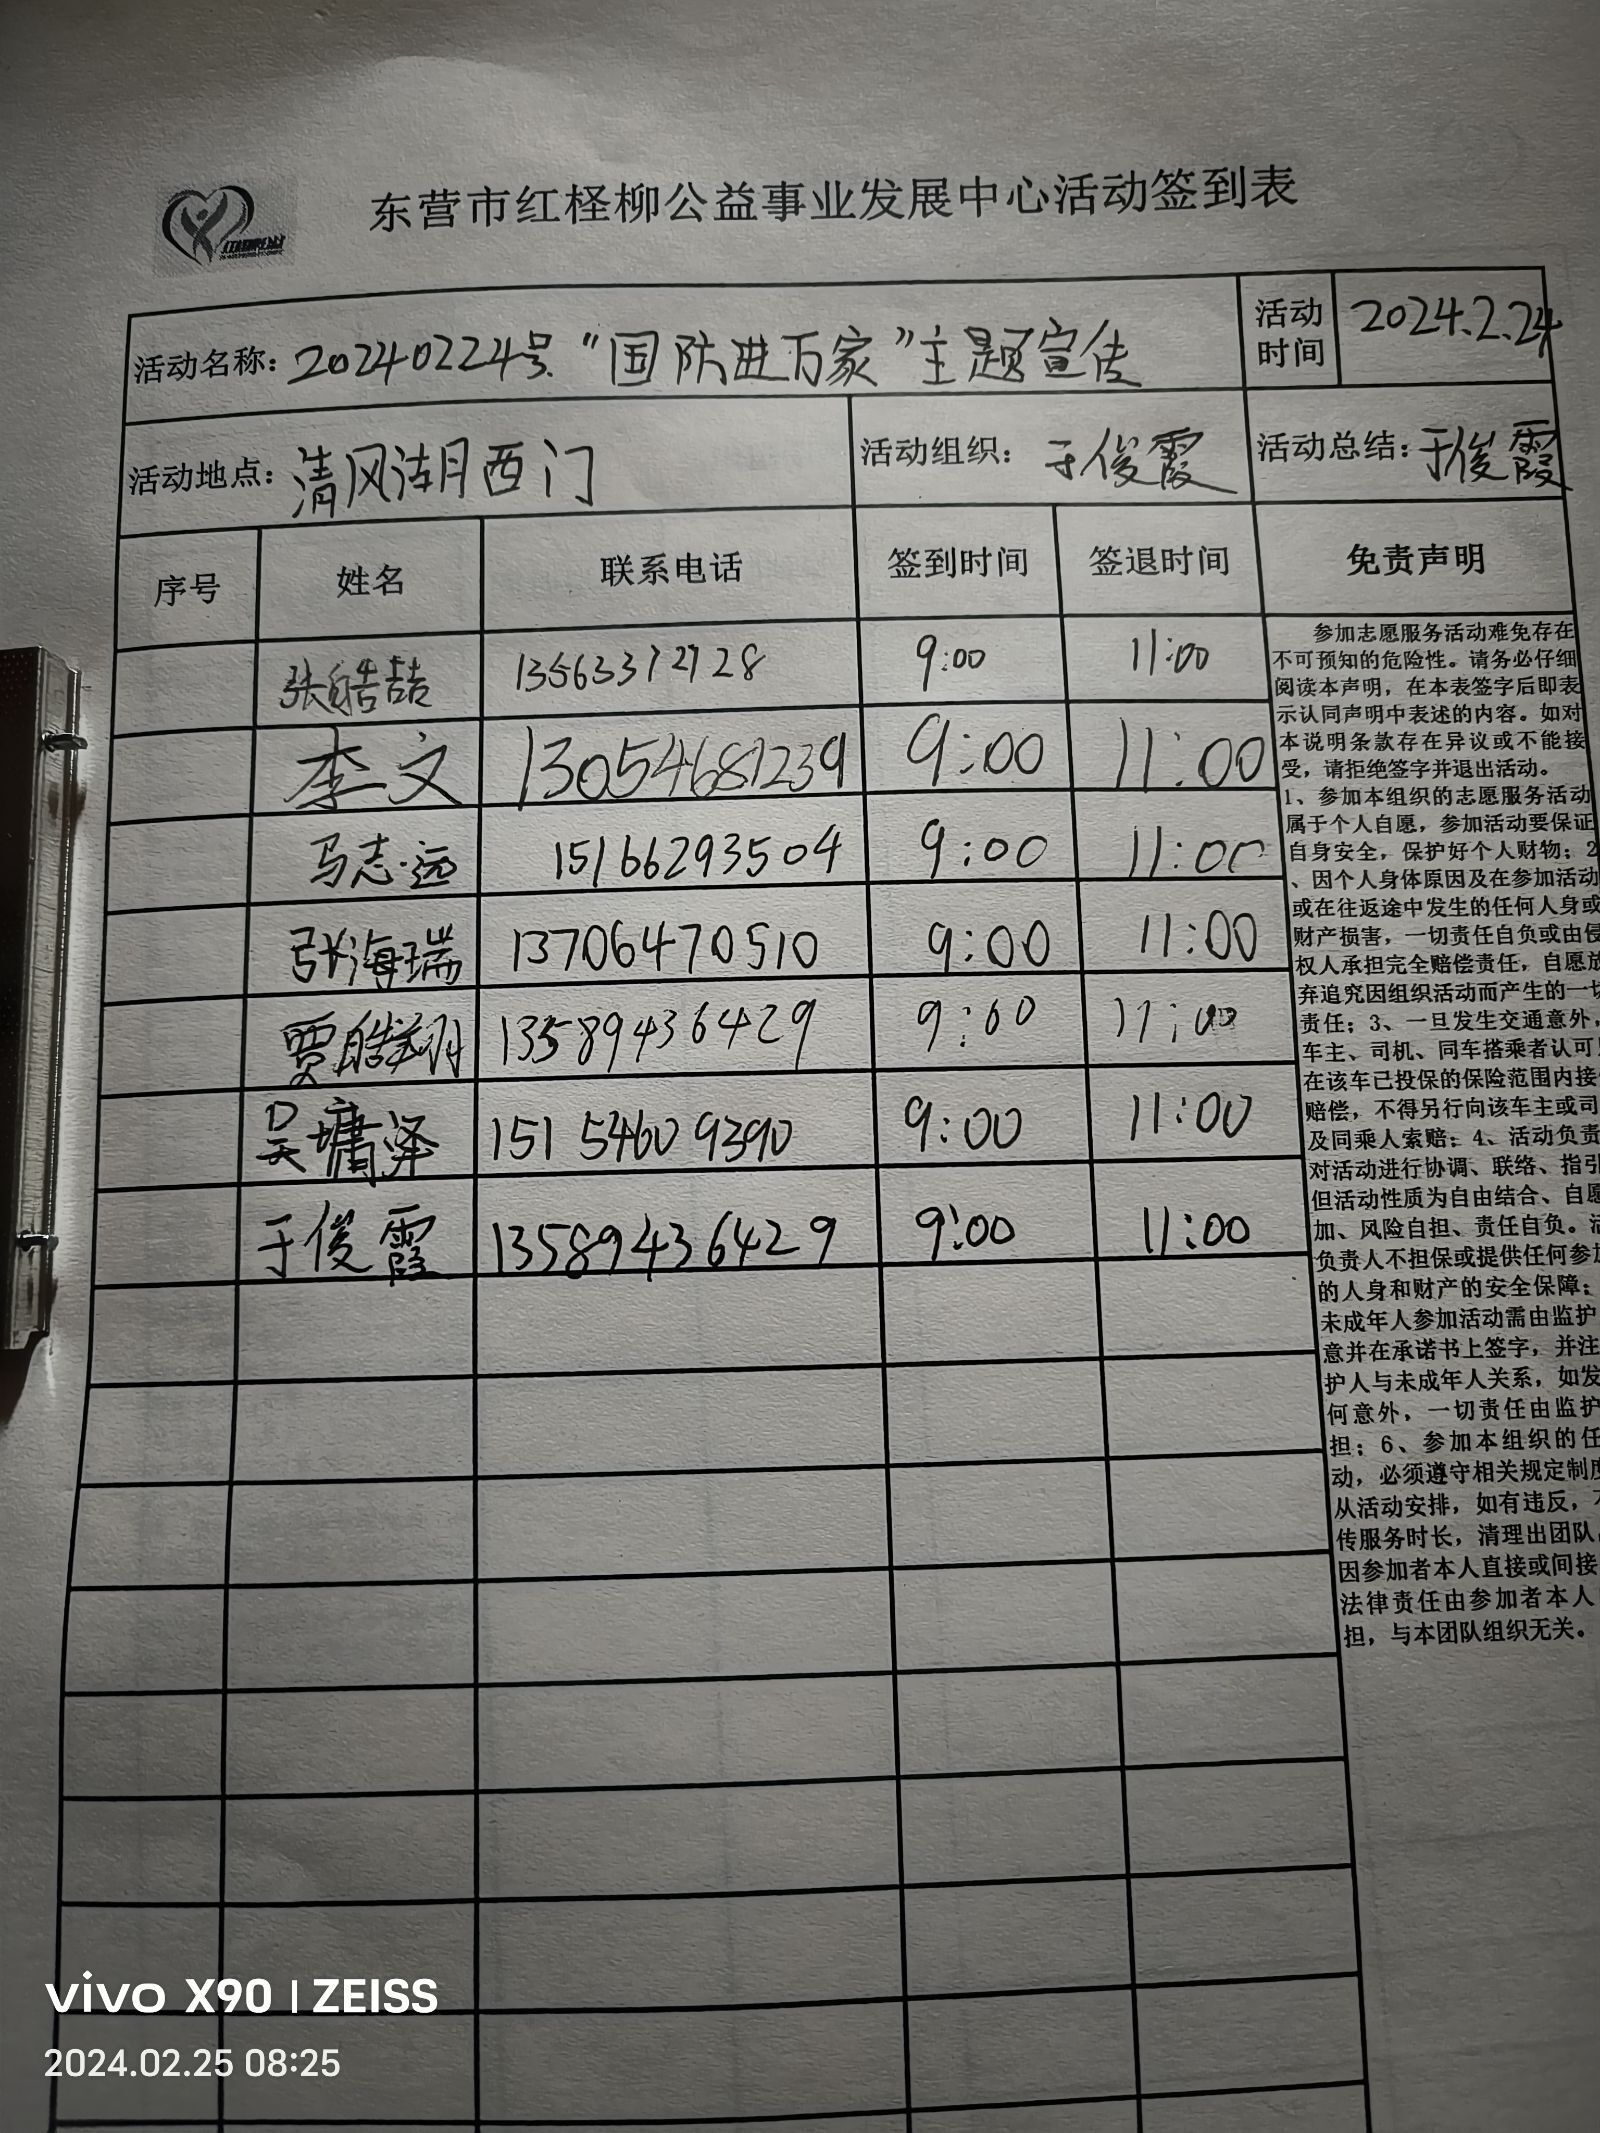 东营市红柽柳公益事业发展中心活动签到表
活动名称：20240224号“国防进万家”主题宣传 活动时间 2024.2.24
活动地点：清风湖西门 活动组织：于俊霞 活动总结：于俊霞
序号 姓名 联系电话 签到时间 签退时间 免责声明
张皓喆 13563372728 9:00 11:00
李文 13054681239 9:00 11:00
马志远 15166293504 9:00 11:00
张海瑞 13706470510 9:00 11:00
贾皓翔 13589436429 9:00 11:00
吴墉泽 15154609390 9:00 11:00
于俊霞 13589436429 9:00 11:00
参加志愿服务活动难免存在
不可预知的危险性。请务必仔细
阅读本声明，在本表签字后即表
示认同声明中表述的内容。如对
本说明条款存在异议或不能接
受，请拒绝签字并退出活动。
1、参加本组织的志愿服务活动
属于个人自愿，参加活动要保证
自身安全，保护好个人财物；2
、因个人身体原因及在参加活动
或在往返途中发生的任何人身或
财产损害，一切责任自负或由侵
权人承担完全赔偿责任，自愿放
弃追究因组织活动而产生的一切
责任；3、一旦发生交通意外，
车主、司机、同车搭乘者认可
在该车已投保的保险范围内接
赔偿，不得另行向该车主或司
及同乘人索赔；4、活动负责
对活动进行协调、联络、指引
但活动性质为自由结合、自愿
加、风险自担、责任自负。活
负责人不担保或提供任何参加
的人身和财产的安全保障；
未成年人参加活动需由监护
意并在承诺书上签字，并注
护人与未成年人关系，如发
何意外，一切责任由监护
担；6、参加本组织的任
动，必须遵守相关规定制度
从活动安排，如有违反，不
传服务时长，清理出团队
因参加者本人直接或间接
法律责任由参加者本人
担，与本团队组织无关。
vivo X90 | ZEISS
2024.02.25 08:25